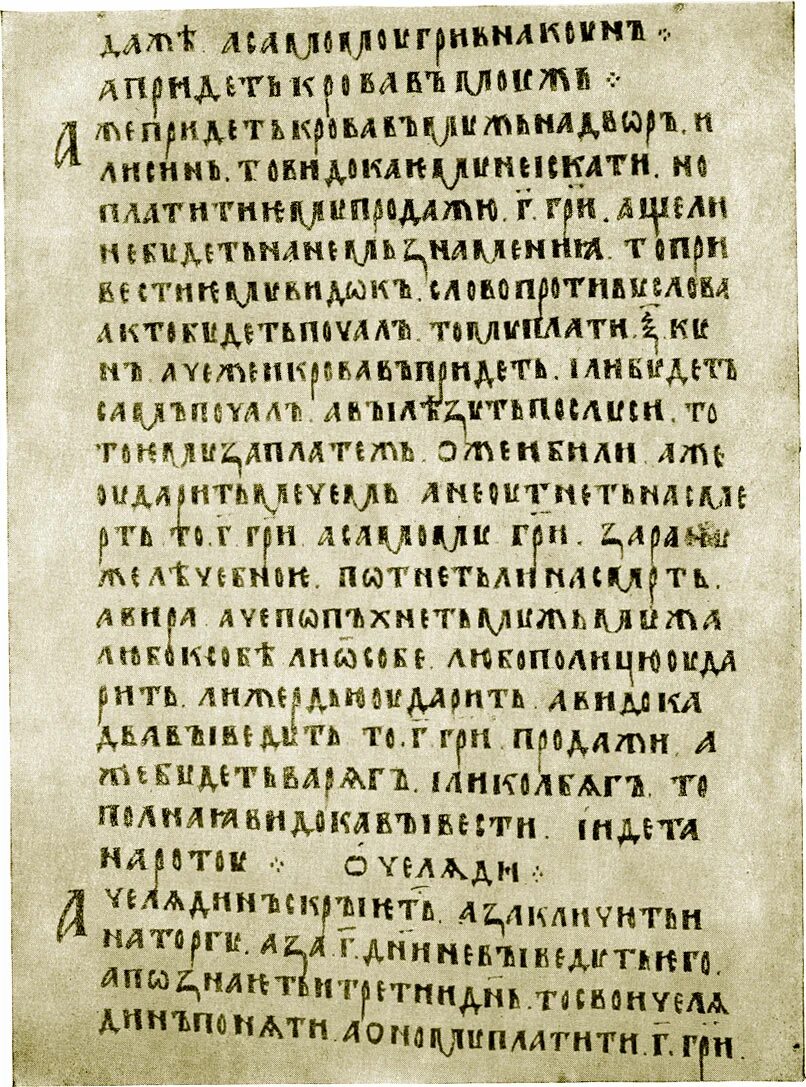 дажѣ · а самомоу гривна коунъ ⁘
а придеть кровавъ моужь ⁘
Аже придеть кровавъ мужь на двѡръ. и
ли синь. то видока ему не iскати. но
платити ѥму продажю. г҃. грн҃. аще ли
не будеть на немь знамениꙗ. то при
вести ѥму видѡкъ. слово противу слова
а кто будеть почалъ. тому платити. ѯ҃. ку
нъ. аче же и кровавъ придеть. iли будеть
самъ почалъ. а вылѣзуть послуси. то
то ѥму за платежь. оже и били. аже
оударить мечемь. а не оутнеть на сме
рть. то. г҃. грн҃. а самому грн҃. за рану
же лѣчебноѥ. потнеть ли на смрть.
а вира. аче пѡпъхнеть мужь мужа
любо к собѣ ли ѿ собе. любо по лицю оуда
рить. ли жердью оударить. а видока
два выведуть. то. г҃. грн҃. продажи. а
же будеть варѧгъ. iли колбѧгъ. то
полнаꙗ видока вывести. iидета
на ротоу ⁘ О челѧди ⁘
А челѧдинъ скрыѥть. а закличють и
на торгу. а за. г҃. дн҃и не выведуть ѥго.
а пѡзнаѥть и третии дн҃ь. то свои челѧ
динъ понѧти. а оному платити. г҃. грн҃.